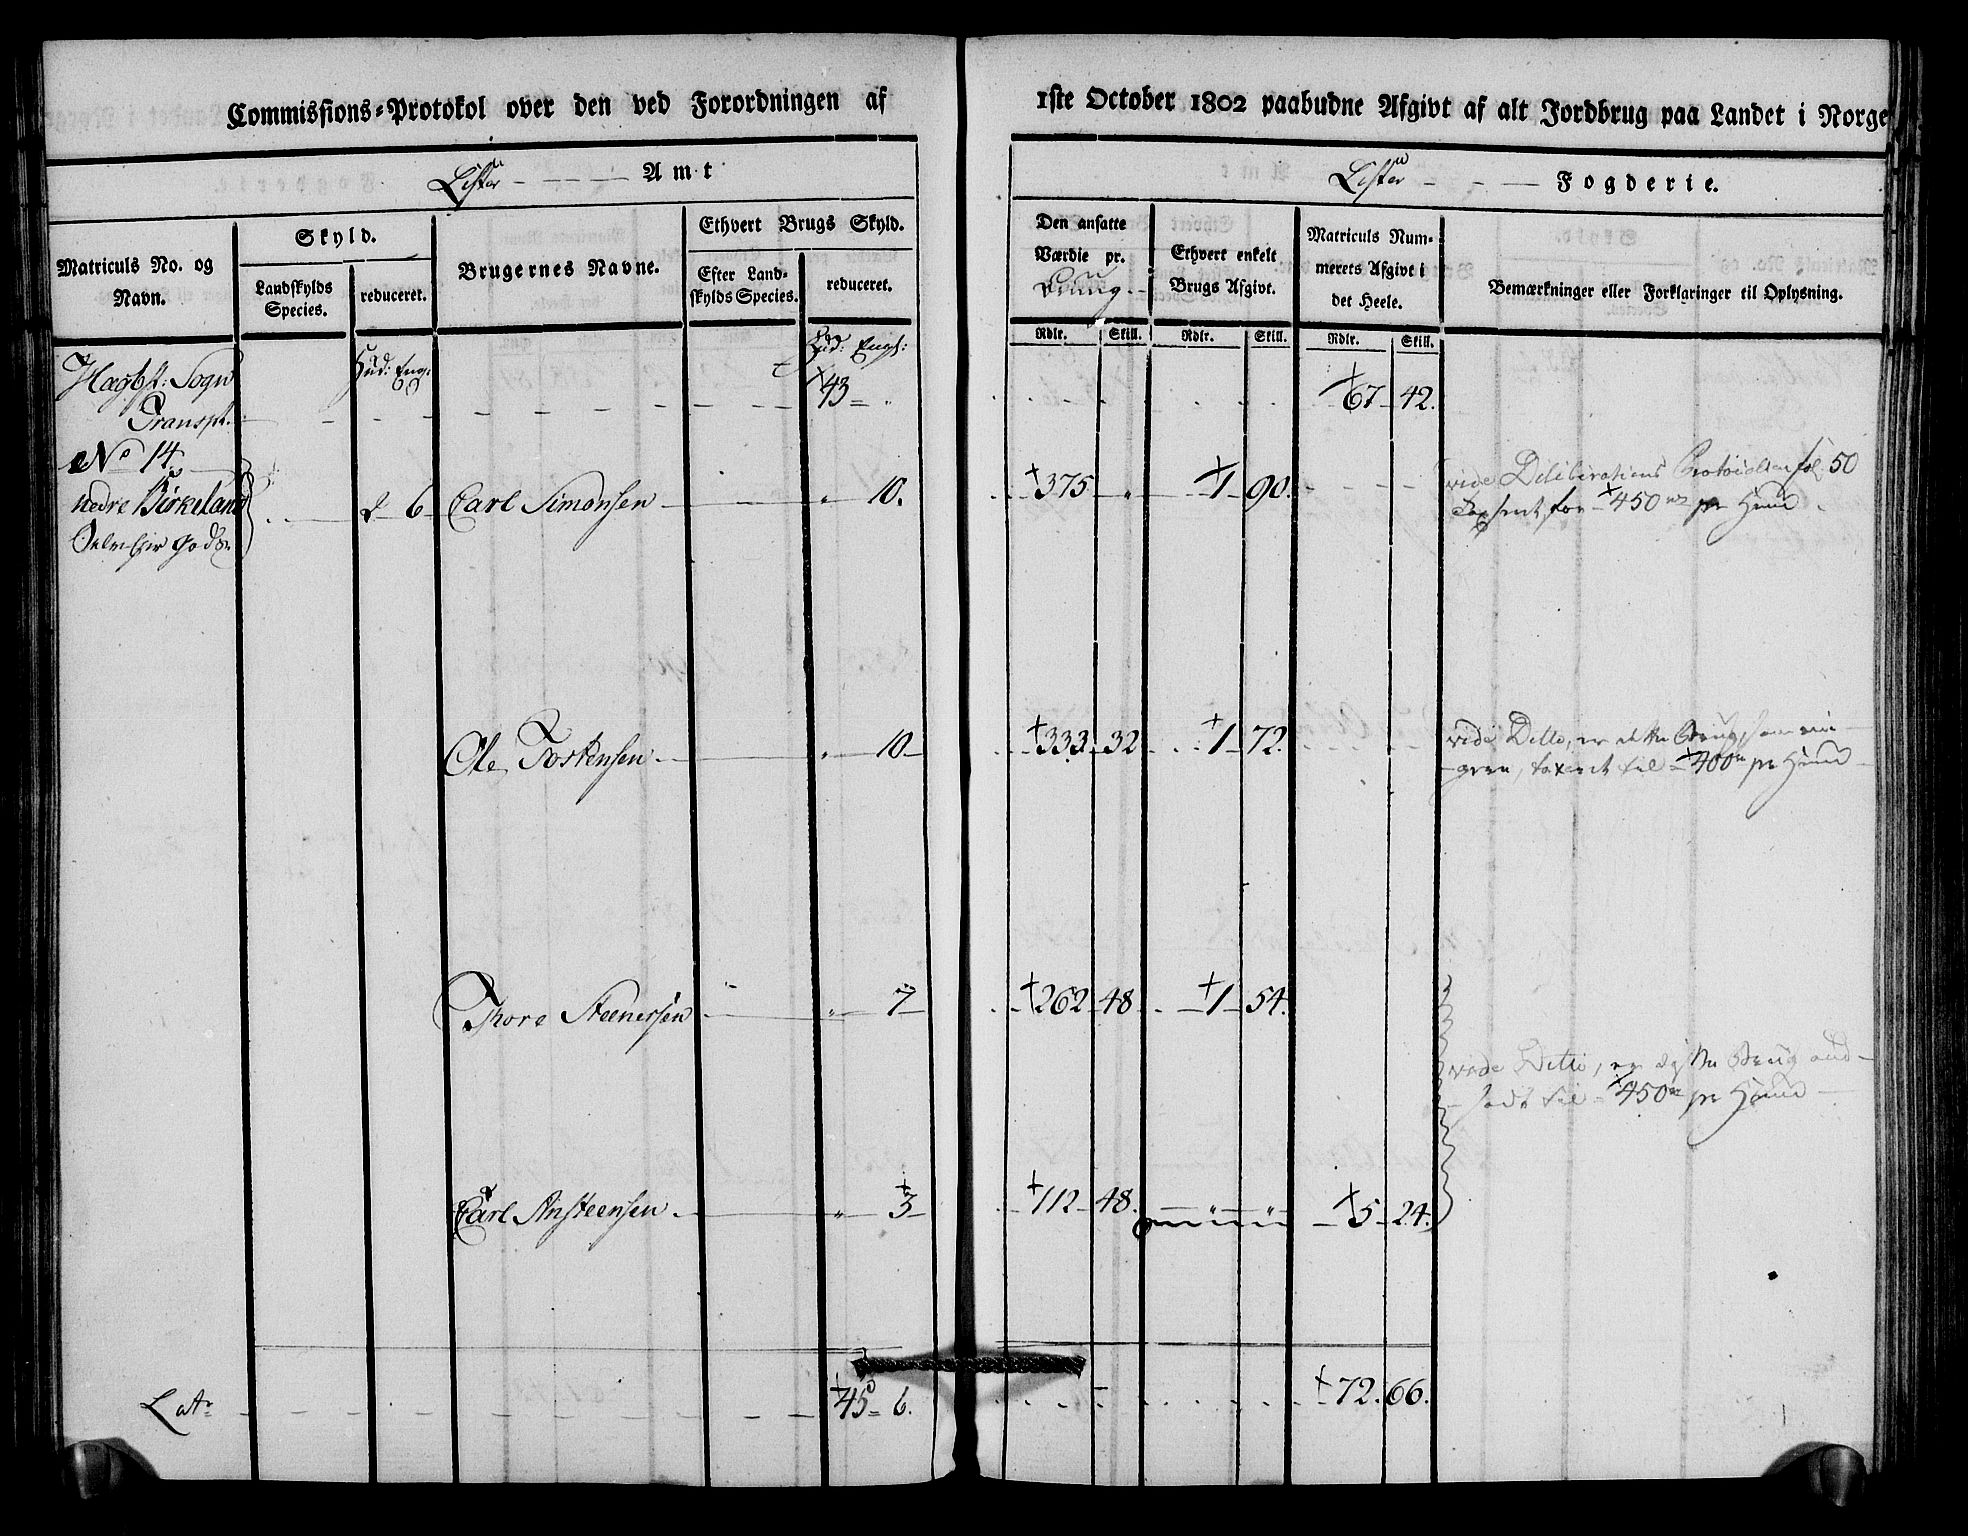 Commissions-Protokol over den ved Forordningen af
1ste October 1802 paabudne Afgivt af alt Jordbrug paa Landet i Norge
Lister Amt
Lister Fogderie.
Matriculs No. og Navn.
Skyld.
Landskylds Species.
reduceret.
Brugernes Navne.
Ethvert Brugs Skyld.
Efter Landskylds Species.
reduceret.
Den ansatte Værdie pr. Bruug
Ethvert enkelt Brugs Afgivt.
Matriculs Nummerets Afgivt i det Heele.
Bemærkninger eller Forklaringer til Oplysning.
Rdlr. Skill. Rdlr. Skill. Rdlr. Skill.
Hægbst: Sogn Hud: Eng: Hud: Engl:
Transpt. 43 = " 67 - 42.
No 14
nedre Birkeland 2 6 Carl Simonsen " 10. 375 " 1 90. vide Deliberations Protocollen fol. 50
Taxeret for 450 pr Huud
Ole Torkensen " 10 333 32 1 72. vide Ditto, er dette Brug, som rin-
gere, taxeret til 400 pr Huud
Thore Steenersen " 7 262 48 1 54.
vide Ditto, er disse Brug and-
sadt til 450 pr Huud
Carl Ansteensen " 3 112 48. " " 5 24.
Lats 45 = 6. 72. 66.